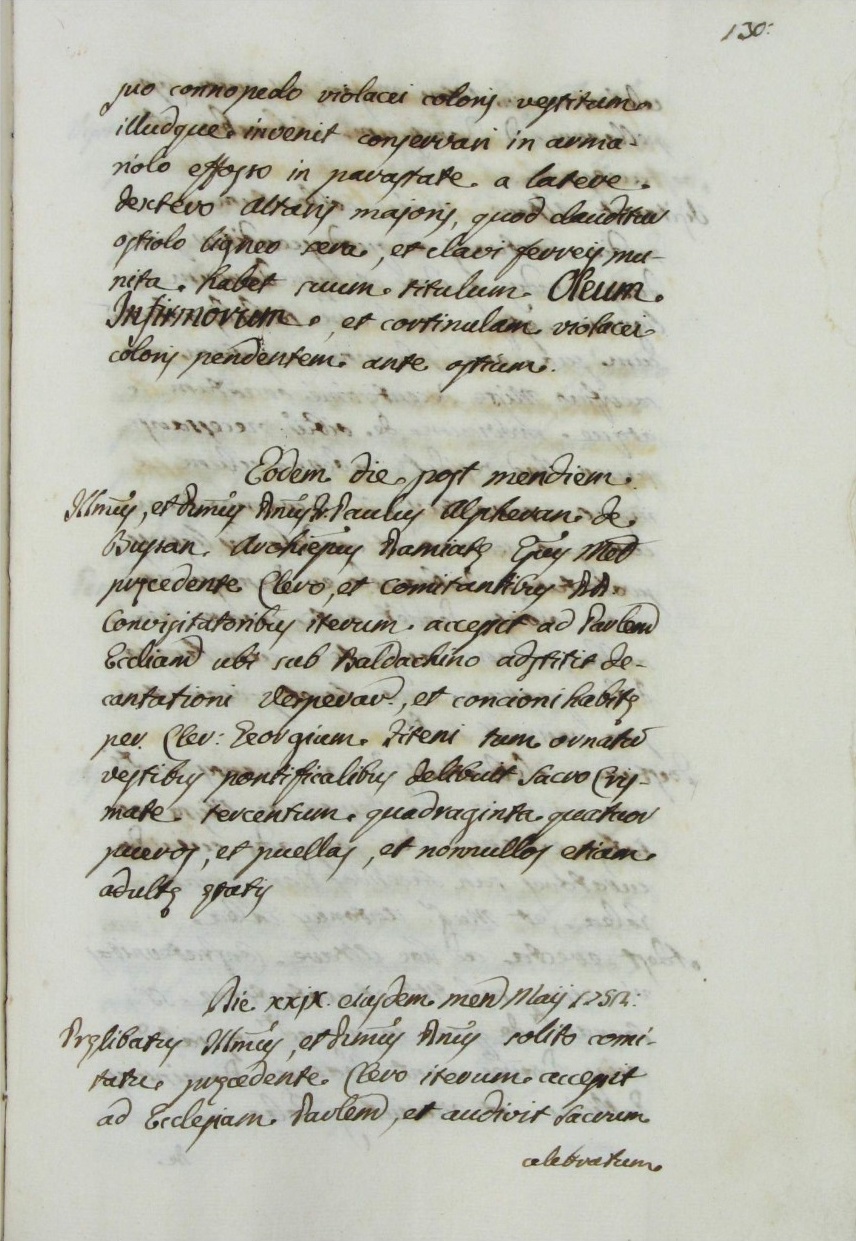 130.
suo connopedo violacei coloris vestitum
illudque invenit conservari in arma-
riolo effosso in parastate a latere
dextero Altaris majoris, quod clauditur
ostiolo ligneo sera, et clavi ferreis mu-
nita. habet suum titulum Oleum
Infirmorum, et cortinulam violacei
coloris pendentem ante ostium.
Eodem die post meridiem
Illm̃us, et Rm̃us Dñus D. Paulus Alpheran de
Bussan Archiep̃us Damiatę Ep̃us Meł
pręcedente Clero, et comitantibus DD.
Convisitatoribus iterum accessit ad Parlem
Eccliam ubi sub Baldachino adstitit de-
cantationi Vesperar., et concioni habitę
per Cler: Georgium Titeni tum ornatus
vestibus pontificalibus delibuit Sacro Cris-
mate tercentum quadraginta quatuor
pueros, et puellas, et nonnullos etiam
adultę ętatis
Die xxix ejusdem mens Maij 1752:
Pręlibatus Illm̃us, et Rm̃us Dñus solito comi-
tatu pręcedente Clero iterum accessit
ad Ecclesiam Parlem, et audivit Sacrum
celebratum